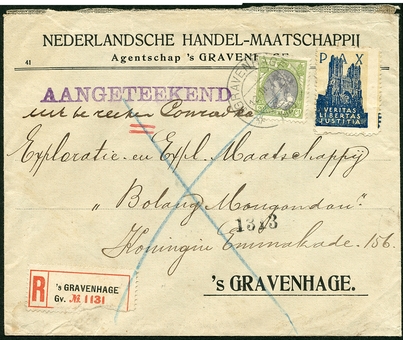 NEDERLANDSCHE HANDEL-MAATSCHAPPIJ
Agentschap 's GRAVENHAGE
41
AANGETEEKEND
PAX
VERITAS
LIBERTAS
JUSTITIA
Exploratie- en Expl. Maatschappij
"Bolang Mongondou"
1313
Koningin Emmakade 156.
's GRAVENHAGE.
R
's GRAVENHAGE
Gv. № 1131